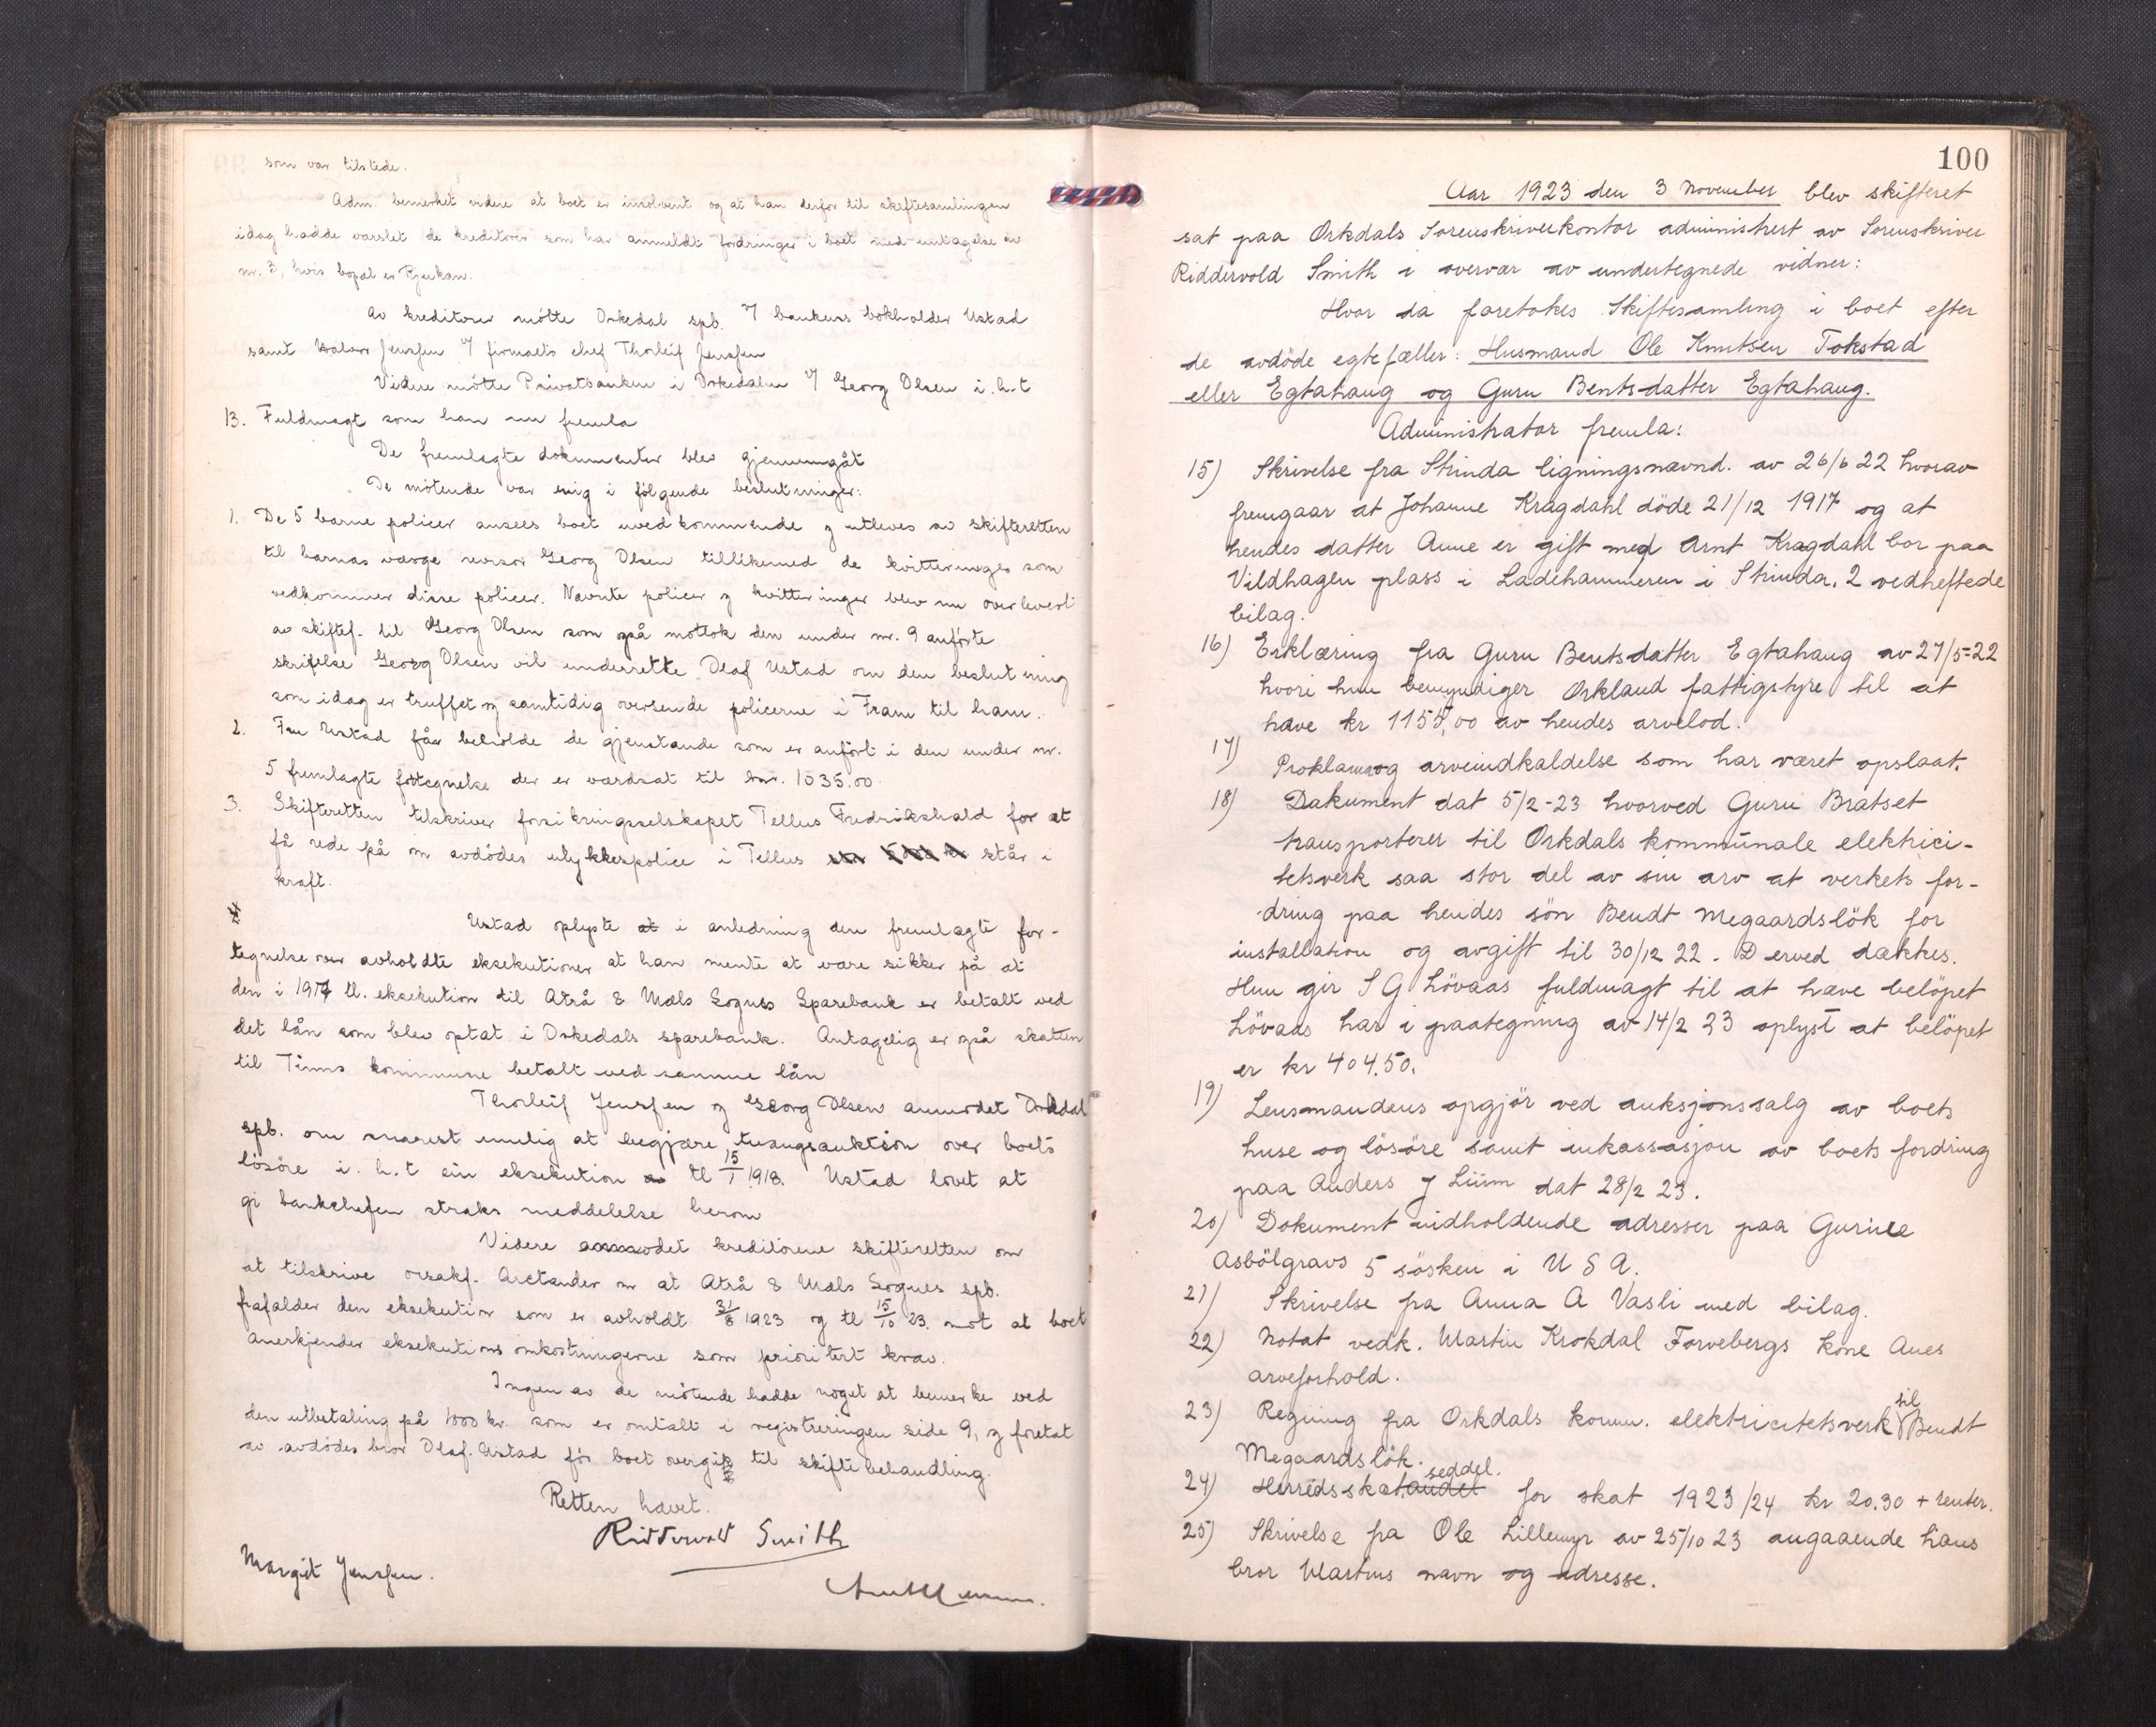 som var tilstede.
Adm. bemerket videre at boet er insolvent og at han derfor til skiftesamlingen
idag hadde varslet de kreditorer som har anmeldt fordringer i boet med undtagelse av
nr. 3, hvis bopæl er Rjukan.
Av kreditorer møtte Orkedal spb. v/ bankens bokholder Ustad
samt Jenssen v/ firmaets chef Thorleif Jenssen
Videre møtte Privatbanken i Orkedalen v/ Georg Olsen i.h.t
13. Fuldmagt som han nu fremla
De fremlagte dokumenter blev gjennemgåt
De møtende var enig i følgende beslutninger:
1. De 5 barne policer ansees boet uvedkommende og utleves av skifteretten
til barnas værge revisor Georg Olsen tillikemed de kvitteringer som
vedkommer disse policer. Nævnte policer og kvitteringer blev nu overlevert
av skiftef. til Georg Olsen som også mottok den under nr. 9 anførte
skrifelse Georg Olsen vil underrette Olaf Ustad om den beslutning
som idag er truffet og samtidig oversende policerne i Fram til ham.
2. Fru Ustad får beholde de gjenstande som er anført i den under nr.
5 fremlagte fortegnelse der er værdsat til kr. 1035.00
3. Skifteretten tilskriver forsikringsselskapet Tellus Fredrikshald for at
få rede på om avdødes ulykkespolice i Tellus står i
kraft.
Ustad oplyste at i anledning den fremlagte for-
tegnelse over avholdte eksekutioner at han mente at være sikker på at
den i 1917 tl. eksekution til Atrå & Mæls Sognes Sparebank er betalt ved
det lån som blev optat i Orkedals sparebank. Antagelig er også skatten
til Tinns kommune betalt ved samme lån
Thorleif Jenssen og Georg Olsen anmodet Orkdal
spb. om snarest mulig at begjære tvangsauktion over boets
løsøre i.h.t sin eksekution av tl 15/1 1918. Ustad lovet at
gi bankchefen straks meddelelse herom
Videre anmodet kreditorene skifteretten om
at tilskrive orsakf. Arctander om at Atrå & Mæls Sognes spb.
frafalder den eksekution som er avholdt 31/8 1923 og tl 15/10 23. mot at boet
anerkjender eksekutionsomkostningerne som prioritert krav.
Ingen av de møtende hadde noget at bemerke ved
den utbetaling på 1000 kr. som er omtalt i registreringen side 9, og foretat
av avdødes bror Olaf Ustad før boet overgik til skiftebehandling.
Retten hævet.
Riddervold Smith
Margit Jenssen.
100
Aar 1923 den 3 November blev skifteret
sat paa Orkdals Sorenskriverkontor administrert av Sorenskriver
Riddervold Smith i overvær av undertegnede vidner:
Hvor da foretokes Skiftesamling i boet efter
de avdöde egtefæller: Husmand Ole Knutsen Tokstad
eller Egtahaug og Guru Bentsdatter Egtahaug.
Administrator fremla:
15) Skrivelse fra Strinda ligningsnævnd. av 26/6 22 hvorav
fremgaar at Johanne Kragdahl döde 21/12 1917 og at
hendes datter Anne er gift med Arnt Kragdahl bor paa
Vildhagen plass i Ladehammeren i Strinda. 2 vedheftede
bilag.
16) Erklæring fra Guru Bentsdatter Egtahaug av 27/5-22
hvori hun bemyndiger Orkland fattigstyre til at
hæve kr 1155,00 av hendes arvelod.
17) Proklama og arveindkaldelse som har været opslaat.
18) Dokument dat 5/2-23 hvorved Guru Bratset
transporterer til Orkdals kommunale elektrici-
tetsverk saa stor del av sin arv at verkets for-
dring paa hendes sön Bendt Megaardslök for
installation og avgift til 30/12 22. Derved dækkes.
Hun gir S G Lövaas fuldmagt til at hæve belöpet
Lövaas har i paategning av 14/2 23 oplyst at belöpet
er kr 404.50.
19) Lensmandens opgjör ved auksjonssalg av boets
huse og lösöre samt inkassasjon av boets fordring
paa Anders J Liim dat 28/2 23.
20) Dokument indholdende adresser paa Gurine
Asbölgravs 5 sösken i U S A.
21) Skrivelse fra Anna A Vasli med bilag.
22) Notat vedk. Martin Krokdal Forvebergs kone Anes
arveforhold.
23) Regning fra Orkdals komm. elektricitetsverk til Bendt
Megaardslök.
24) Herredsskatandet seddel. for skat 1923/24 kr 20.30 + renter.
25) Skrivelse fra Ole Lillemyr av 25/10 23 angaaende hans
bror Martins navn og adresse.